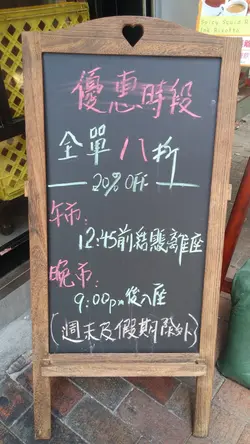 優惠時段
全單八折
20% OFF
午市:
12:45前務懇離座
晚市:
9:00pm後入座
(週末及假期除外)